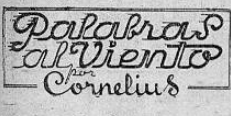 Palabras
al Viento
por
Cornelius